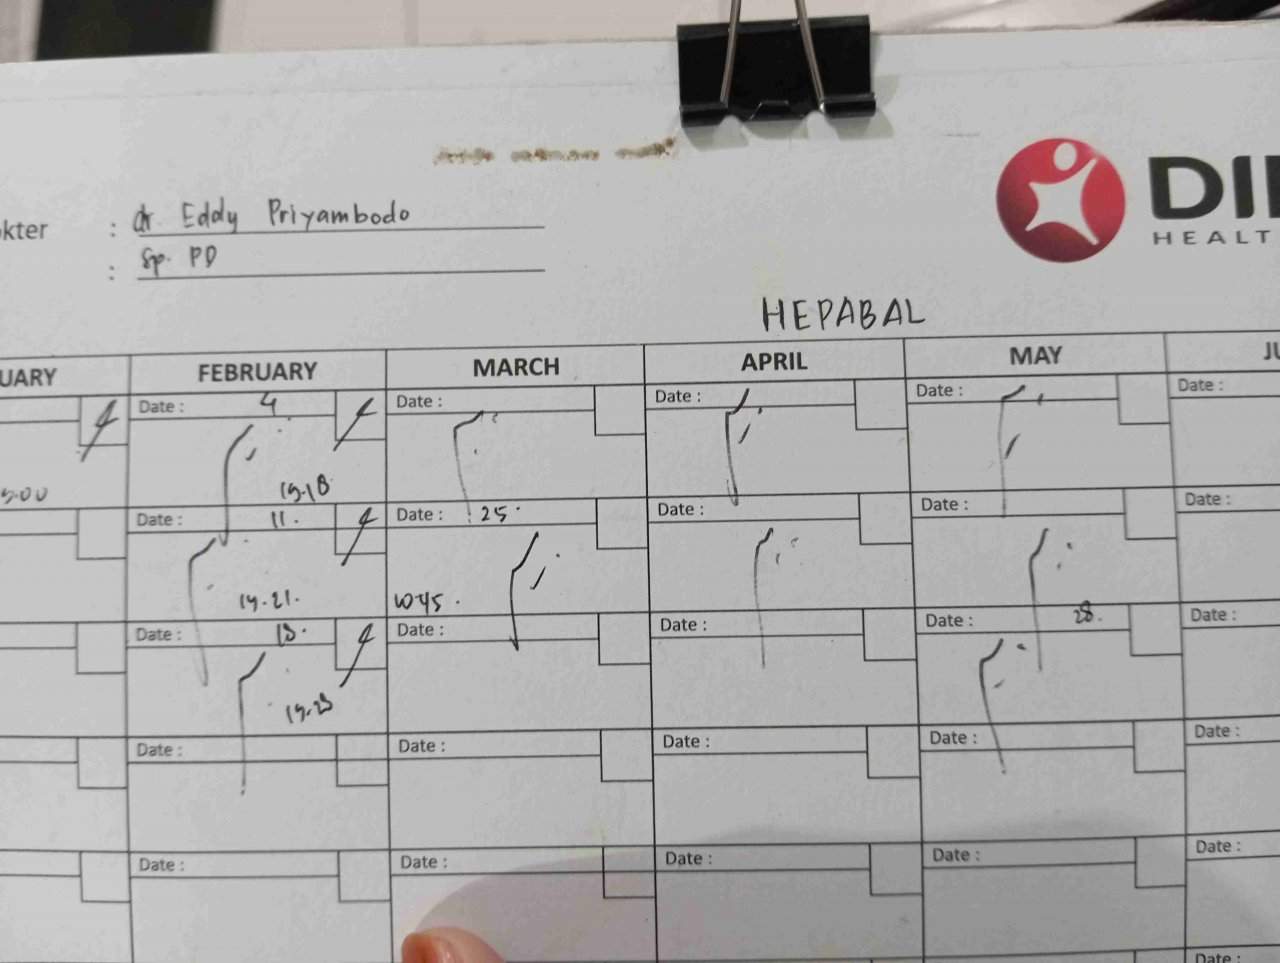 kter : dr. Eddy Priyambodo
: Sp. PD
DI
HEALT
HEPABAL
UARY FEBRUARY MARCH APRIL MAY JU
Date : 4 Date : Date : Date : Date :
19.18
Date : 11. Date : 25. Date : Date : Date :
19.21. 10.45.
Date : 18. Date : Date : Date : 28. Date :
19.23
Date : Date : Date : Date : Date :
Date : Date : Date : Date : Date :
Date :